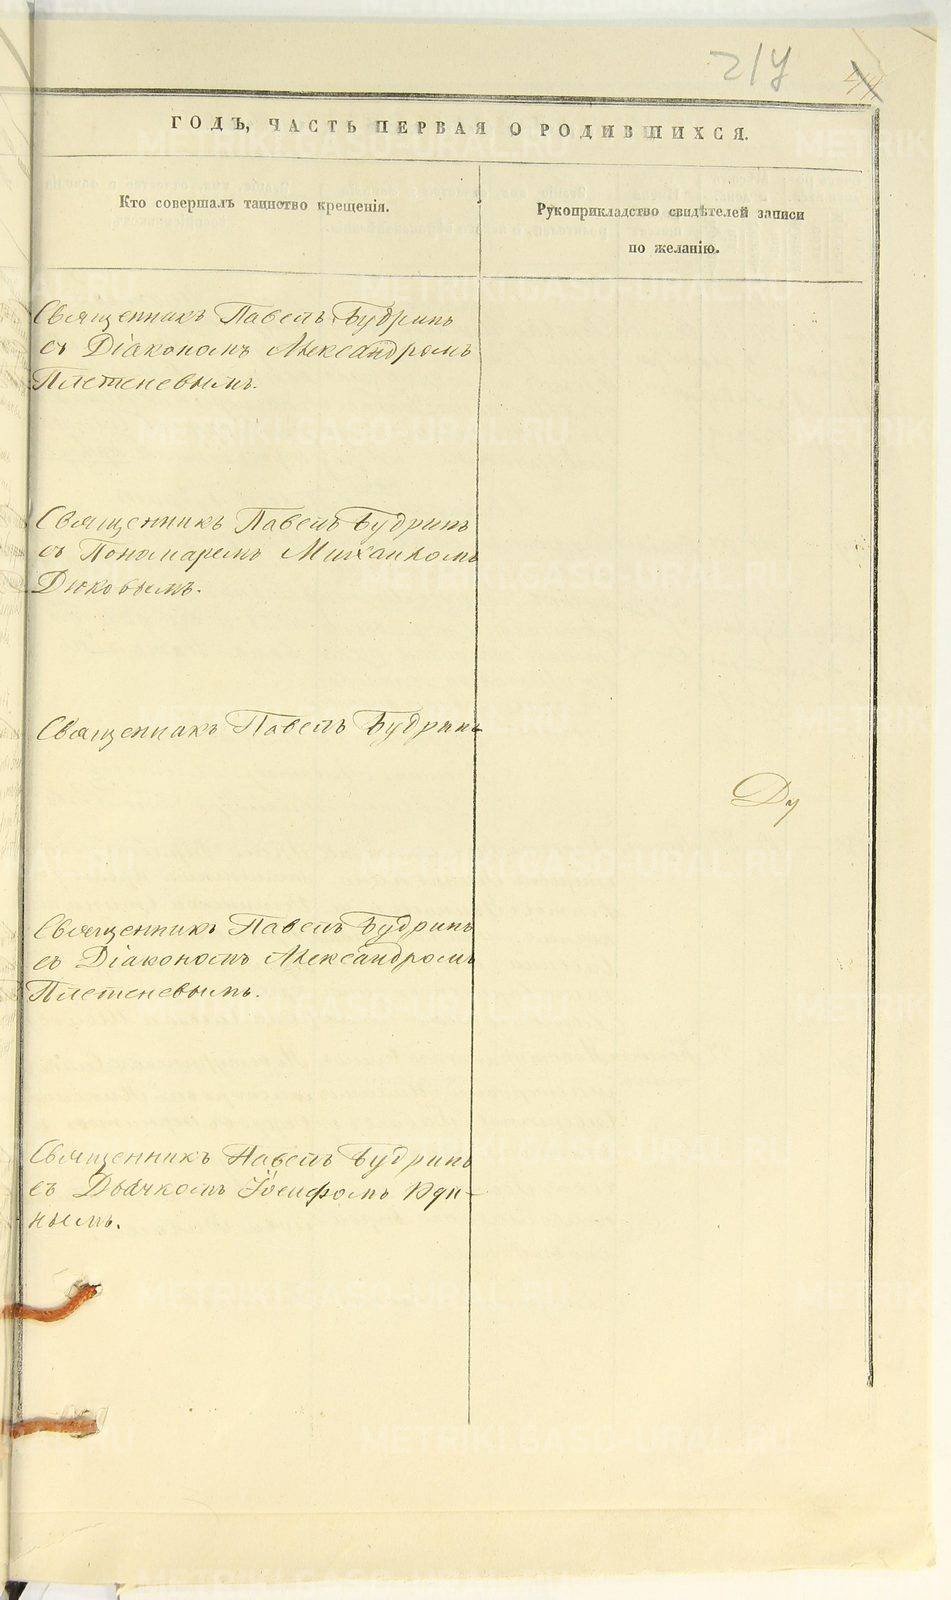 ГОДЪ, ЧАСТЬ ПЕРВАЯ О РОДИВШИХСЯ.
Кто совершалъ таинство крещенія.
Рукоприкладство свидѣтелей записи
по желанію.
Священникъ Павелъ Будринъ
съ Діакономъ Александромъ
Плетеневымъ.
Священникъ Павелъ Будринъ
съ Пономаремъ Михаиломъ
Дюковымъ.
Священникъ Павелъ Будринъ
Ду
Священникъ Павелъ Будринъ
съ Діакономъ Александромъ
Плетеневымъ.
Священникъ Павелъ Будринъ
съ Дьячкомъ Іосифомъ
нымъ.
METRIKI.GASO-URAL.RU